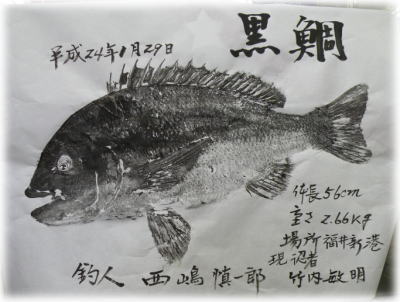 黒鯛
平成24年1月29日
体長 56cm
重さ 2.66Kg
場所 福井新港
現認者 竹内敏明
釣人 西嶋慎一郎